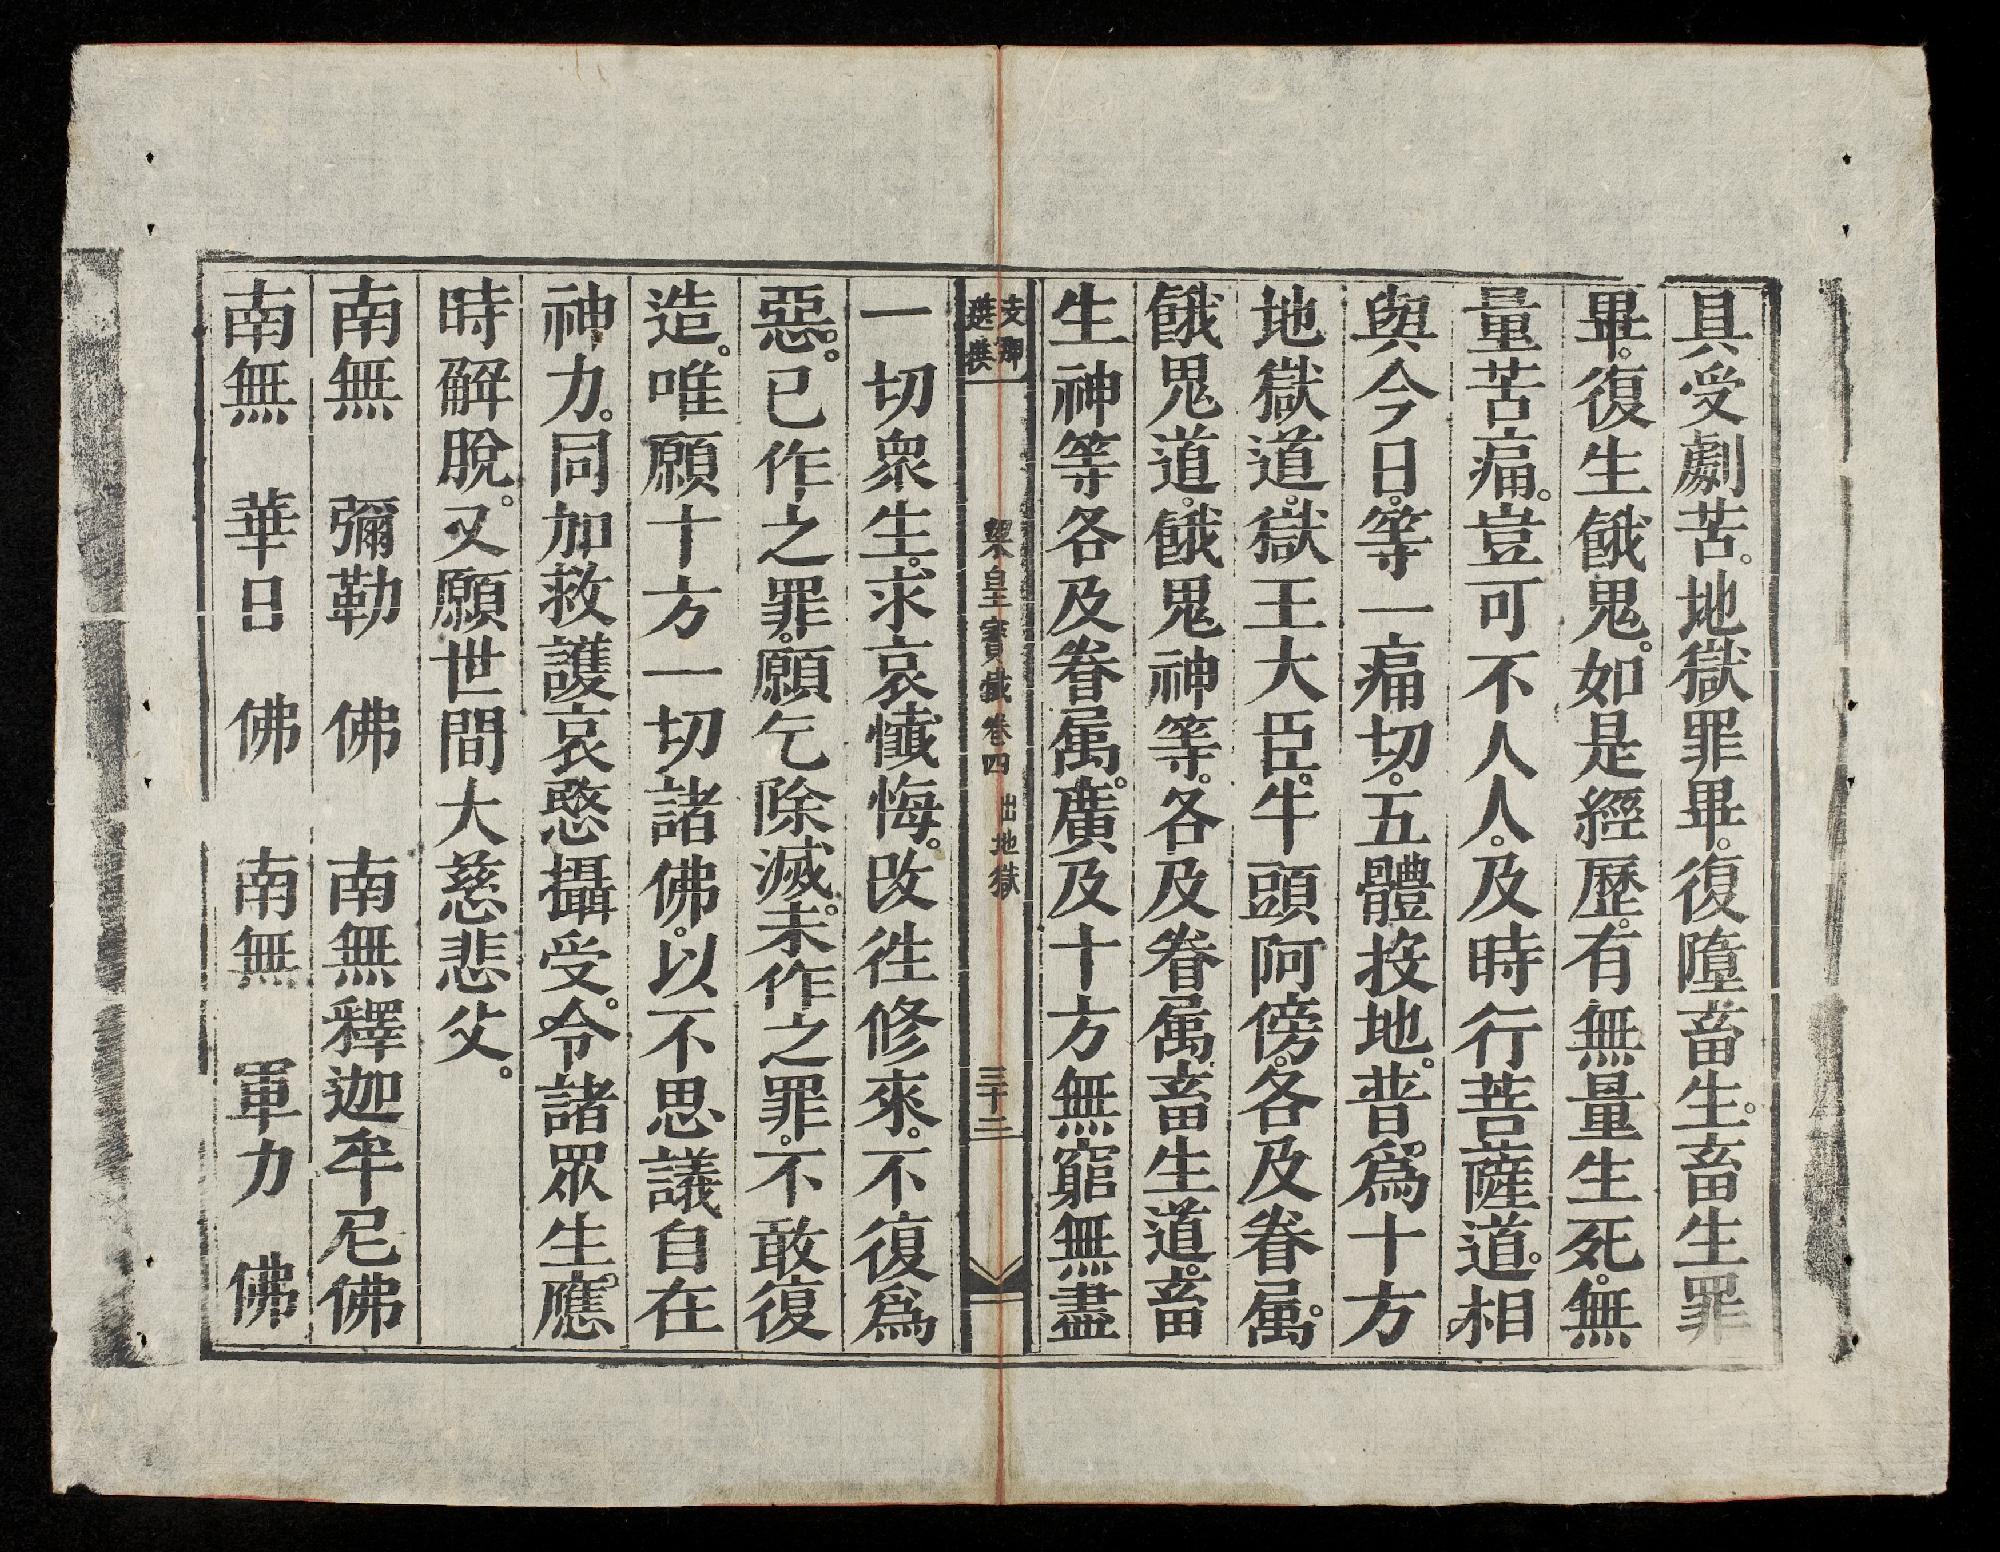 具受劇苦。地獄罪畢。復墮畜生。畜生罪
畢。復生餓鬼。如是經歷。有無量生死。無
量苦痛。豈可不人人。及時行菩薩道。相
與今日。等一痛切。五體投地。普爲十方
地獄道。獄王大臣。牛頭阿傍。各及眷屬。
餓鬼道。餓鬼神等。各及眷屬。畜生道。畜
生神等各及眷屬。廣及十方無窮無盡
支那
選撰
梁皇寶懺卷四 出地獄 三十二
一切衆生。求哀懺悔。改徃修來。不復爲
惡。已作之罪。願乞除滅。未作之罪。不敢復
造。唯願十方一切諸佛。以不思議自在
神力。同加救護哀愍攝受。令諸眾生。應
時解脫。又願世間大慈悲父。
南無 彌勒 佛 南無釋迦牟尼佛
南無 華日 佛 南無 軍力 佛